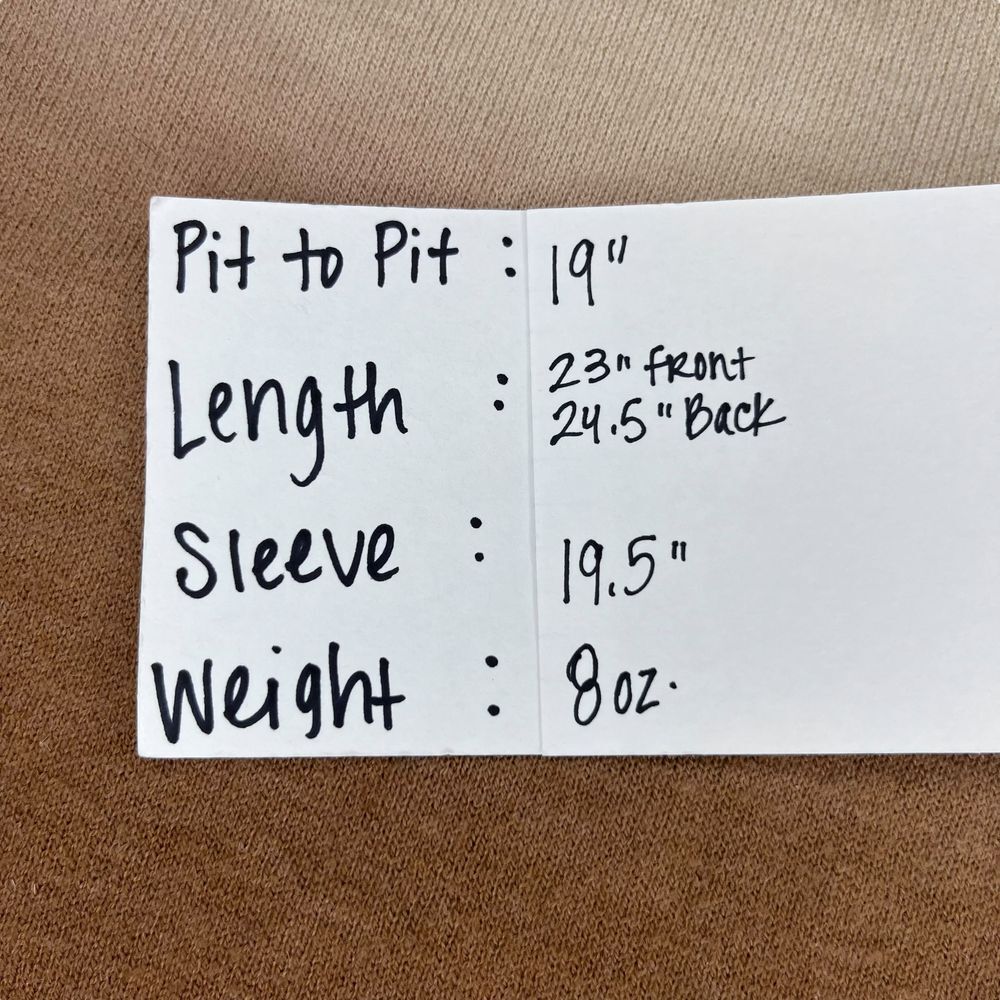 Pit to Pit : 19"
Length : 23" front
24.5" Back
Sleeve : 19.5"
Weight : 8 oz.